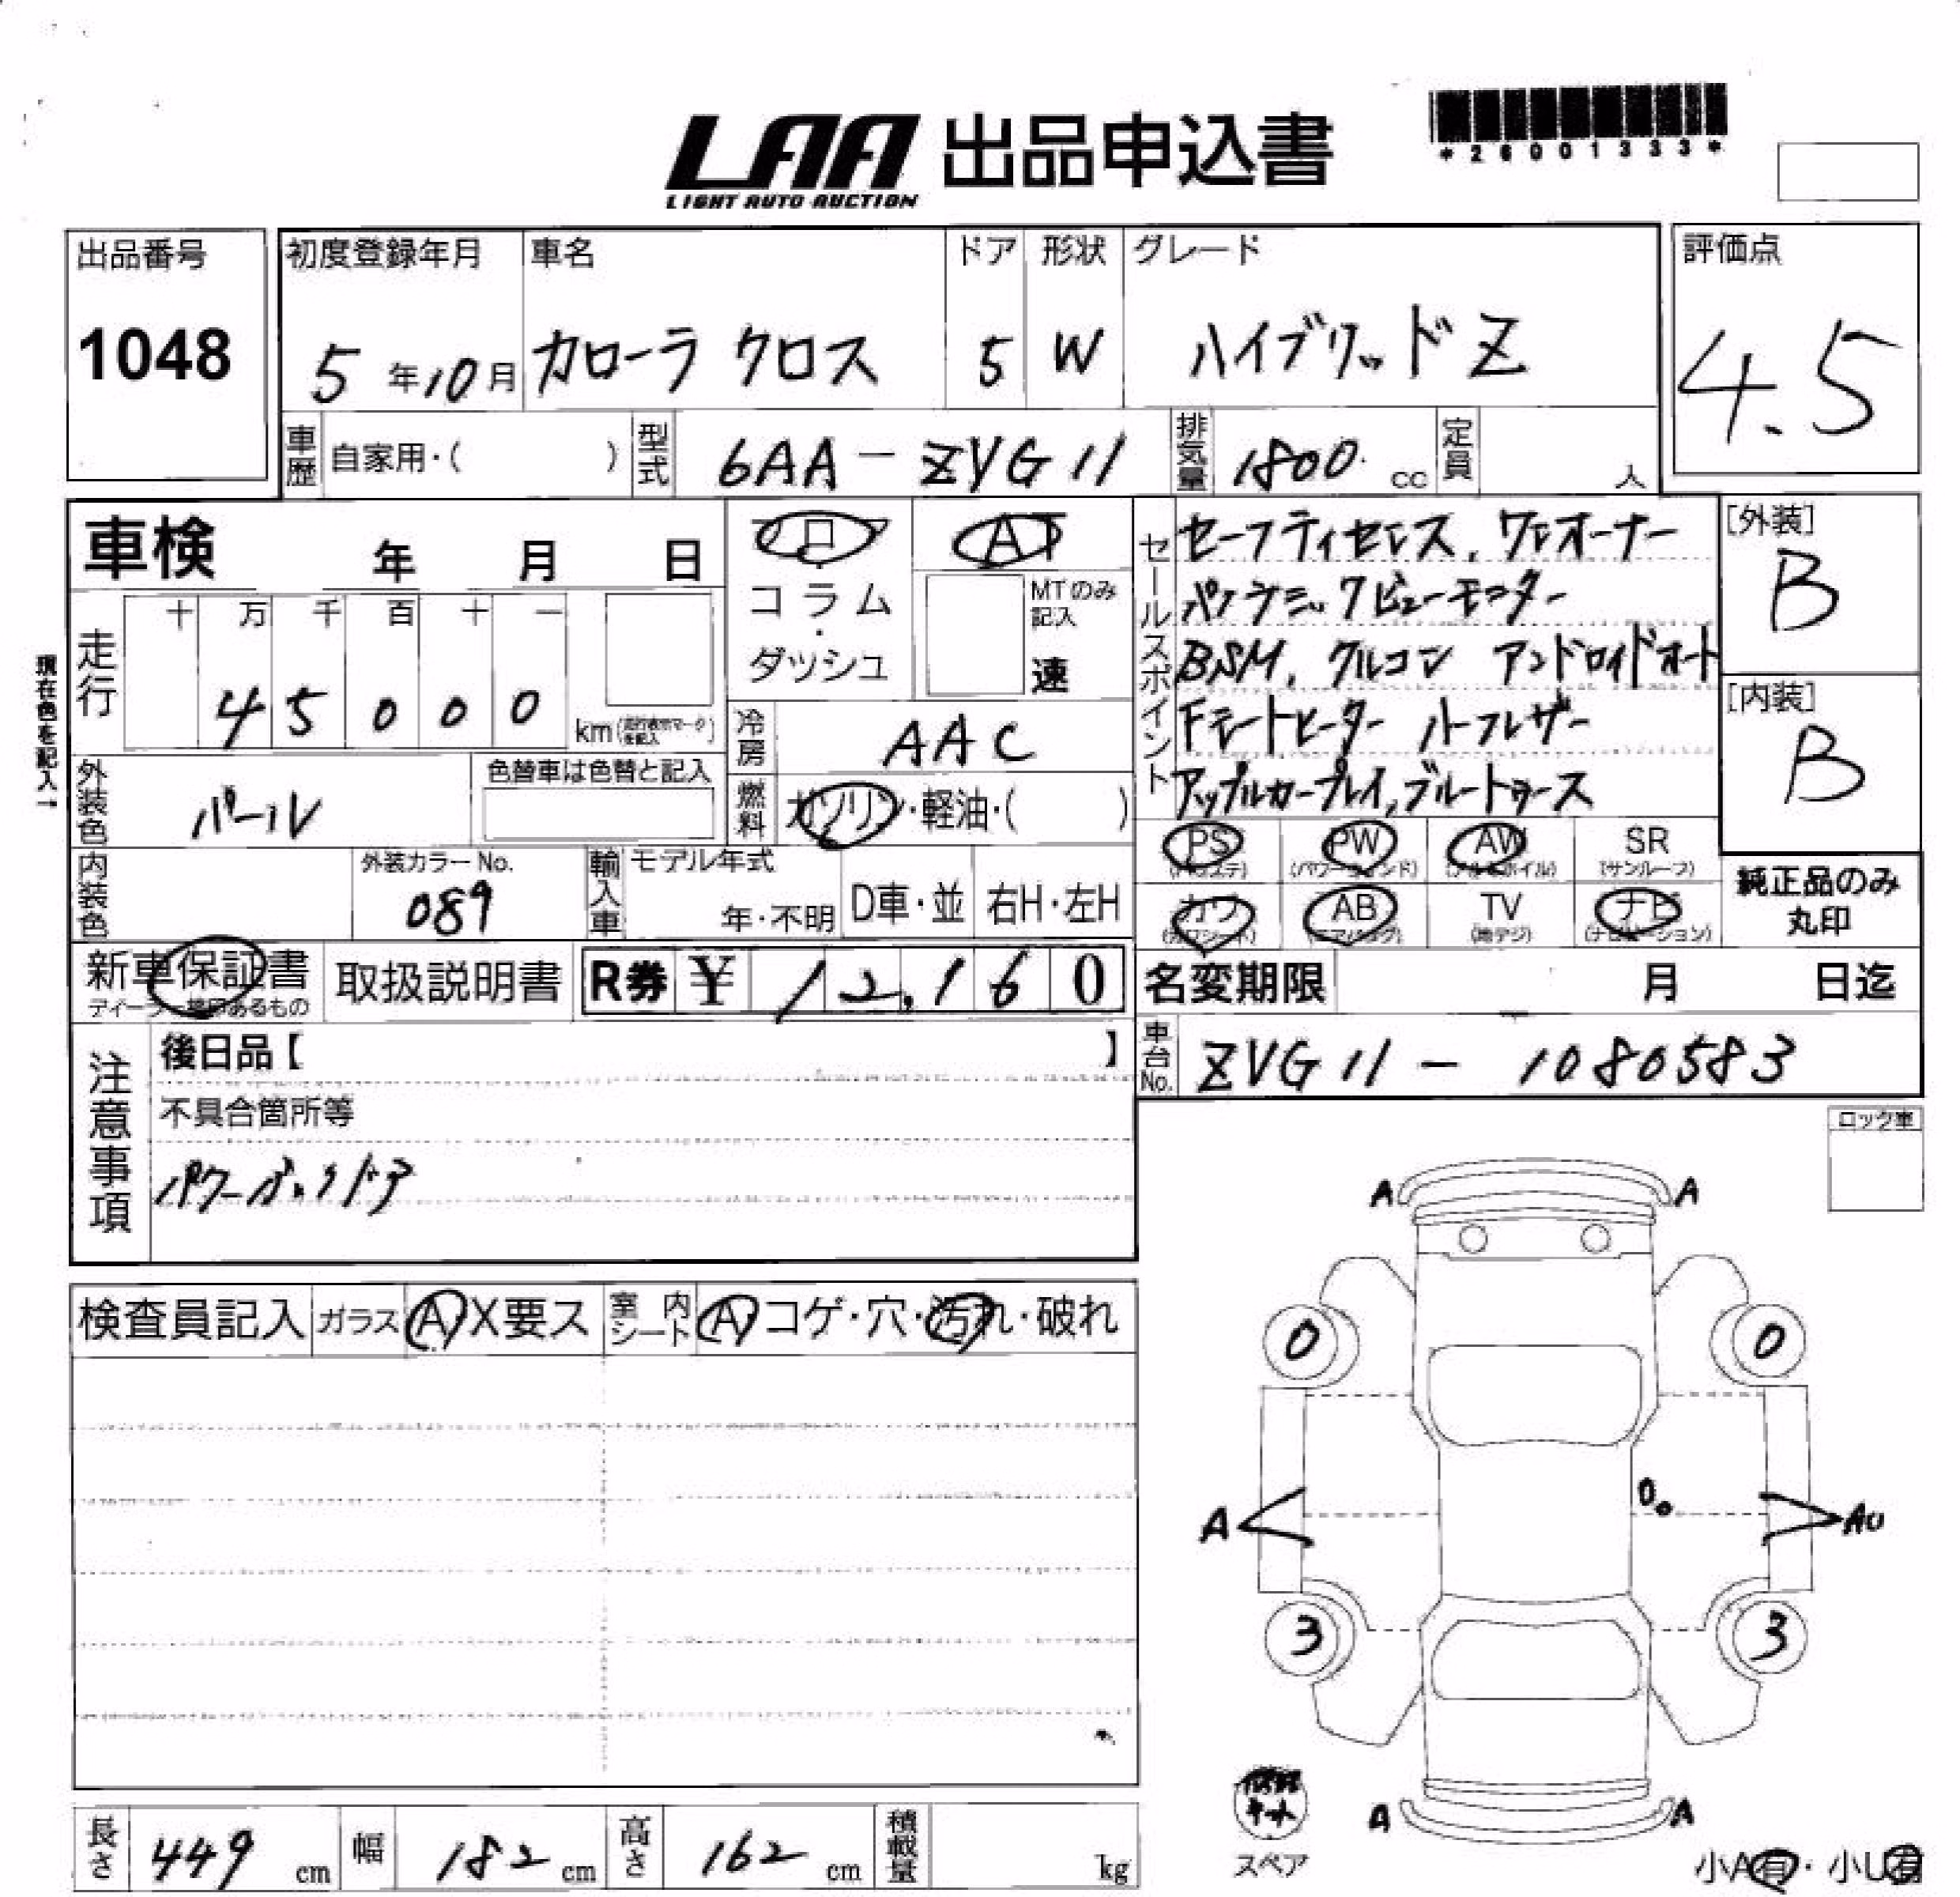 LAA 出品申込書
LIGHT AUTO AUCTION
*26001333*
出品番号
1048
初度登録年月
5年10月
車名
カローラ クロス
ドア
5
形状
W
グレード
ハイブリッドZ
評価点
4.5
車歴 自家用・( )
型式 6AA-ZVG11
排気量 1800 cc
定員 人
車検 年 月 日
フロア
コラム・ダッシュ
AT
MTのみ記入
速
現在色を記入→
走行
十 万 千 百 十 一
45000 km
冷房 AAC
外装色 パール
色替車は色替と記入
燃料 ガソリン・軽油・( )
内装色
外装カラーNo.
089
輸入車 モデル年式
年・不明
D車・並 右H・左H
セールスポイント
セーフティセンス、ワンオーナー
パノラミックビューモニター
BSM、クルコン アンドロイドオート
Fシートヒーター ハーフレザー
アップルカープレイ、ブルートゥース
[外装]
B
[内装]
B
PS (パワステ)
PW (パワーウィンド)
AW (アルミホイル)
SR (サンルーフ)
カワ (カワシート)
AB (エアバッグ)
TV (地デジ)
ナビ (ナビゲーション)
純正品のみ丸印
新車保証書
取扱説明書
R券 ¥ 12,160
名変期限 月 日迄
車台No. ZVG11-1080583
注意事項
後日品【 】
不具合箇所等
パワーバックドア
ロック車
検査員記入
ガラス A X要ス
室内シート A コゲ・穴・汚れ・破れ
A A
0 0
A AU
3 3
キット
スペア
A A
長さ 449 cm
幅 182 cm
高さ 162 cm
積載量 kg
小A有・小U有